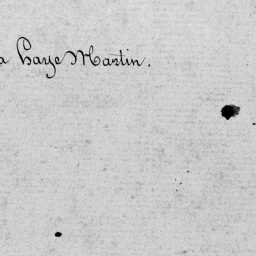 a Haye Martin.